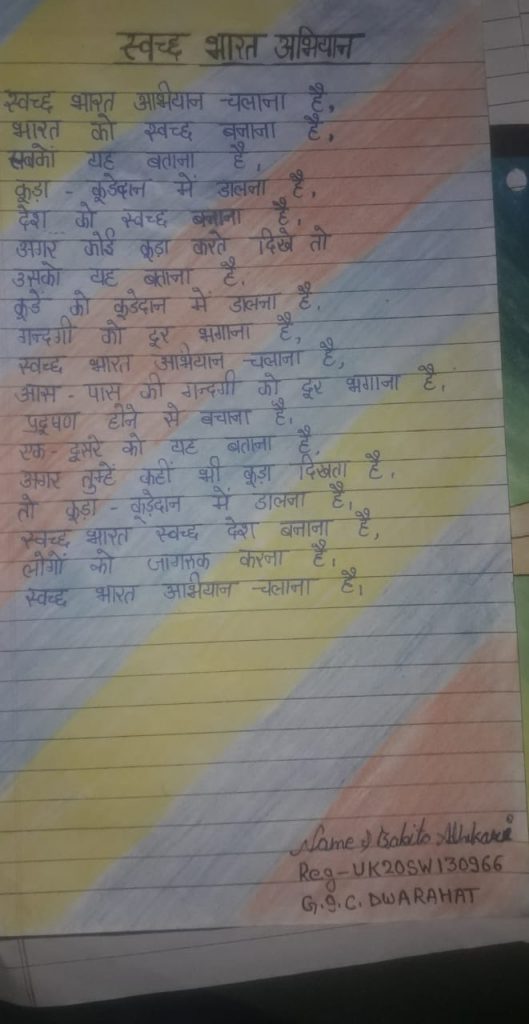 स्वच्छ भारत अभियान
स्वच्छ भारत अभियान चलाना है,
भारत को स्वच्छ बनाना है,
सबको यह बताना है,
कूड़ा - कूडेदान में डालना है,
देश को स्वच्छ बनाना है,
अगर कोई कूड़ा करते दिखे तो
उसको यह बताना है,
कूड़े को कूडेदान में डालना है,
गन्दगी को दूर भगाना है,
स्वच्छ भारत अभियान चलाना है,
आस - पास की गन्दगी को दूर भगाना है,
प्रदूषण होने से बचाना है,
एक - दूसरे को यह बताना है,
अगर तुम्हें कहीं भी कूड़ा दिखता है,
तो कूड़ा - कूड़ेदान में डालना है,
स्वच्छ भारत स्वच्छ देश बनाना है,
लोगों को जागरूक करना है,
स्वच्छ भारत अभियान चलाना है,
Name
Reg - UK20SW130966
G.I.C. DWARAHAT